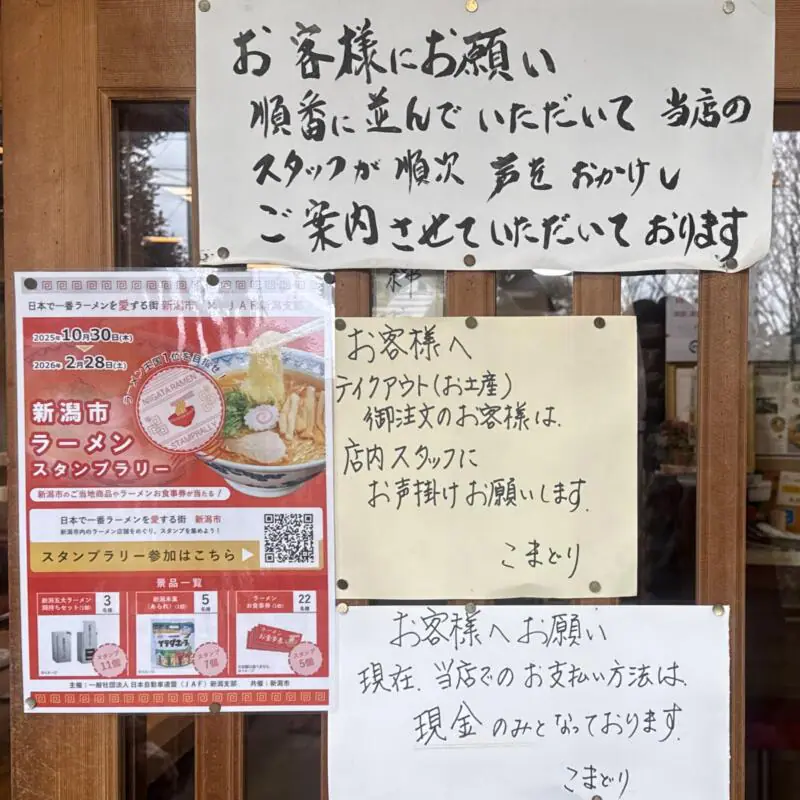 お客様にお願い
順番に並んでいただいて 当店の
スタッフが 順次 声を おかけし
ご案内させていただいております
日本で一番ラーメンを愛する街 新潟市 × JAF新潟支部
2025年10月30日(木)
2026年2月28日(土)
ラーメン王国1位を目指せ
NIIGATA RAMEN
STAMPRALLY
新潟市
ラーメン
スタンプラリー
新潟市のご当地商品やラーメンお食事券が当たる!
日本で一番ラーメンを愛する街 新潟市
新潟市内のラーメン店舗をめぐり、スタンプを集めよう!
スタンプラリー参加はこちら
景品一覧
新潟五大ラーメン
3名様
スタンプ
11個
新潟米菓
(あられ)(1袋)
5名様
サラダホープ
スタンプ
7個
ラーメン
お食事券(1枚)
22名様
スタンプ
5個
主催:一般社団法人 日本自動車連盟(JAF)新潟支部 共催:新潟市
お客様へ
テイクアウト(お土産)
御注文のお客様は、
店内スタッフに
お声掛けお願いします。
こまどり
お客様へお願い
現在、当店でのお支払い方法は、
現金のみとなっております。
こまどり